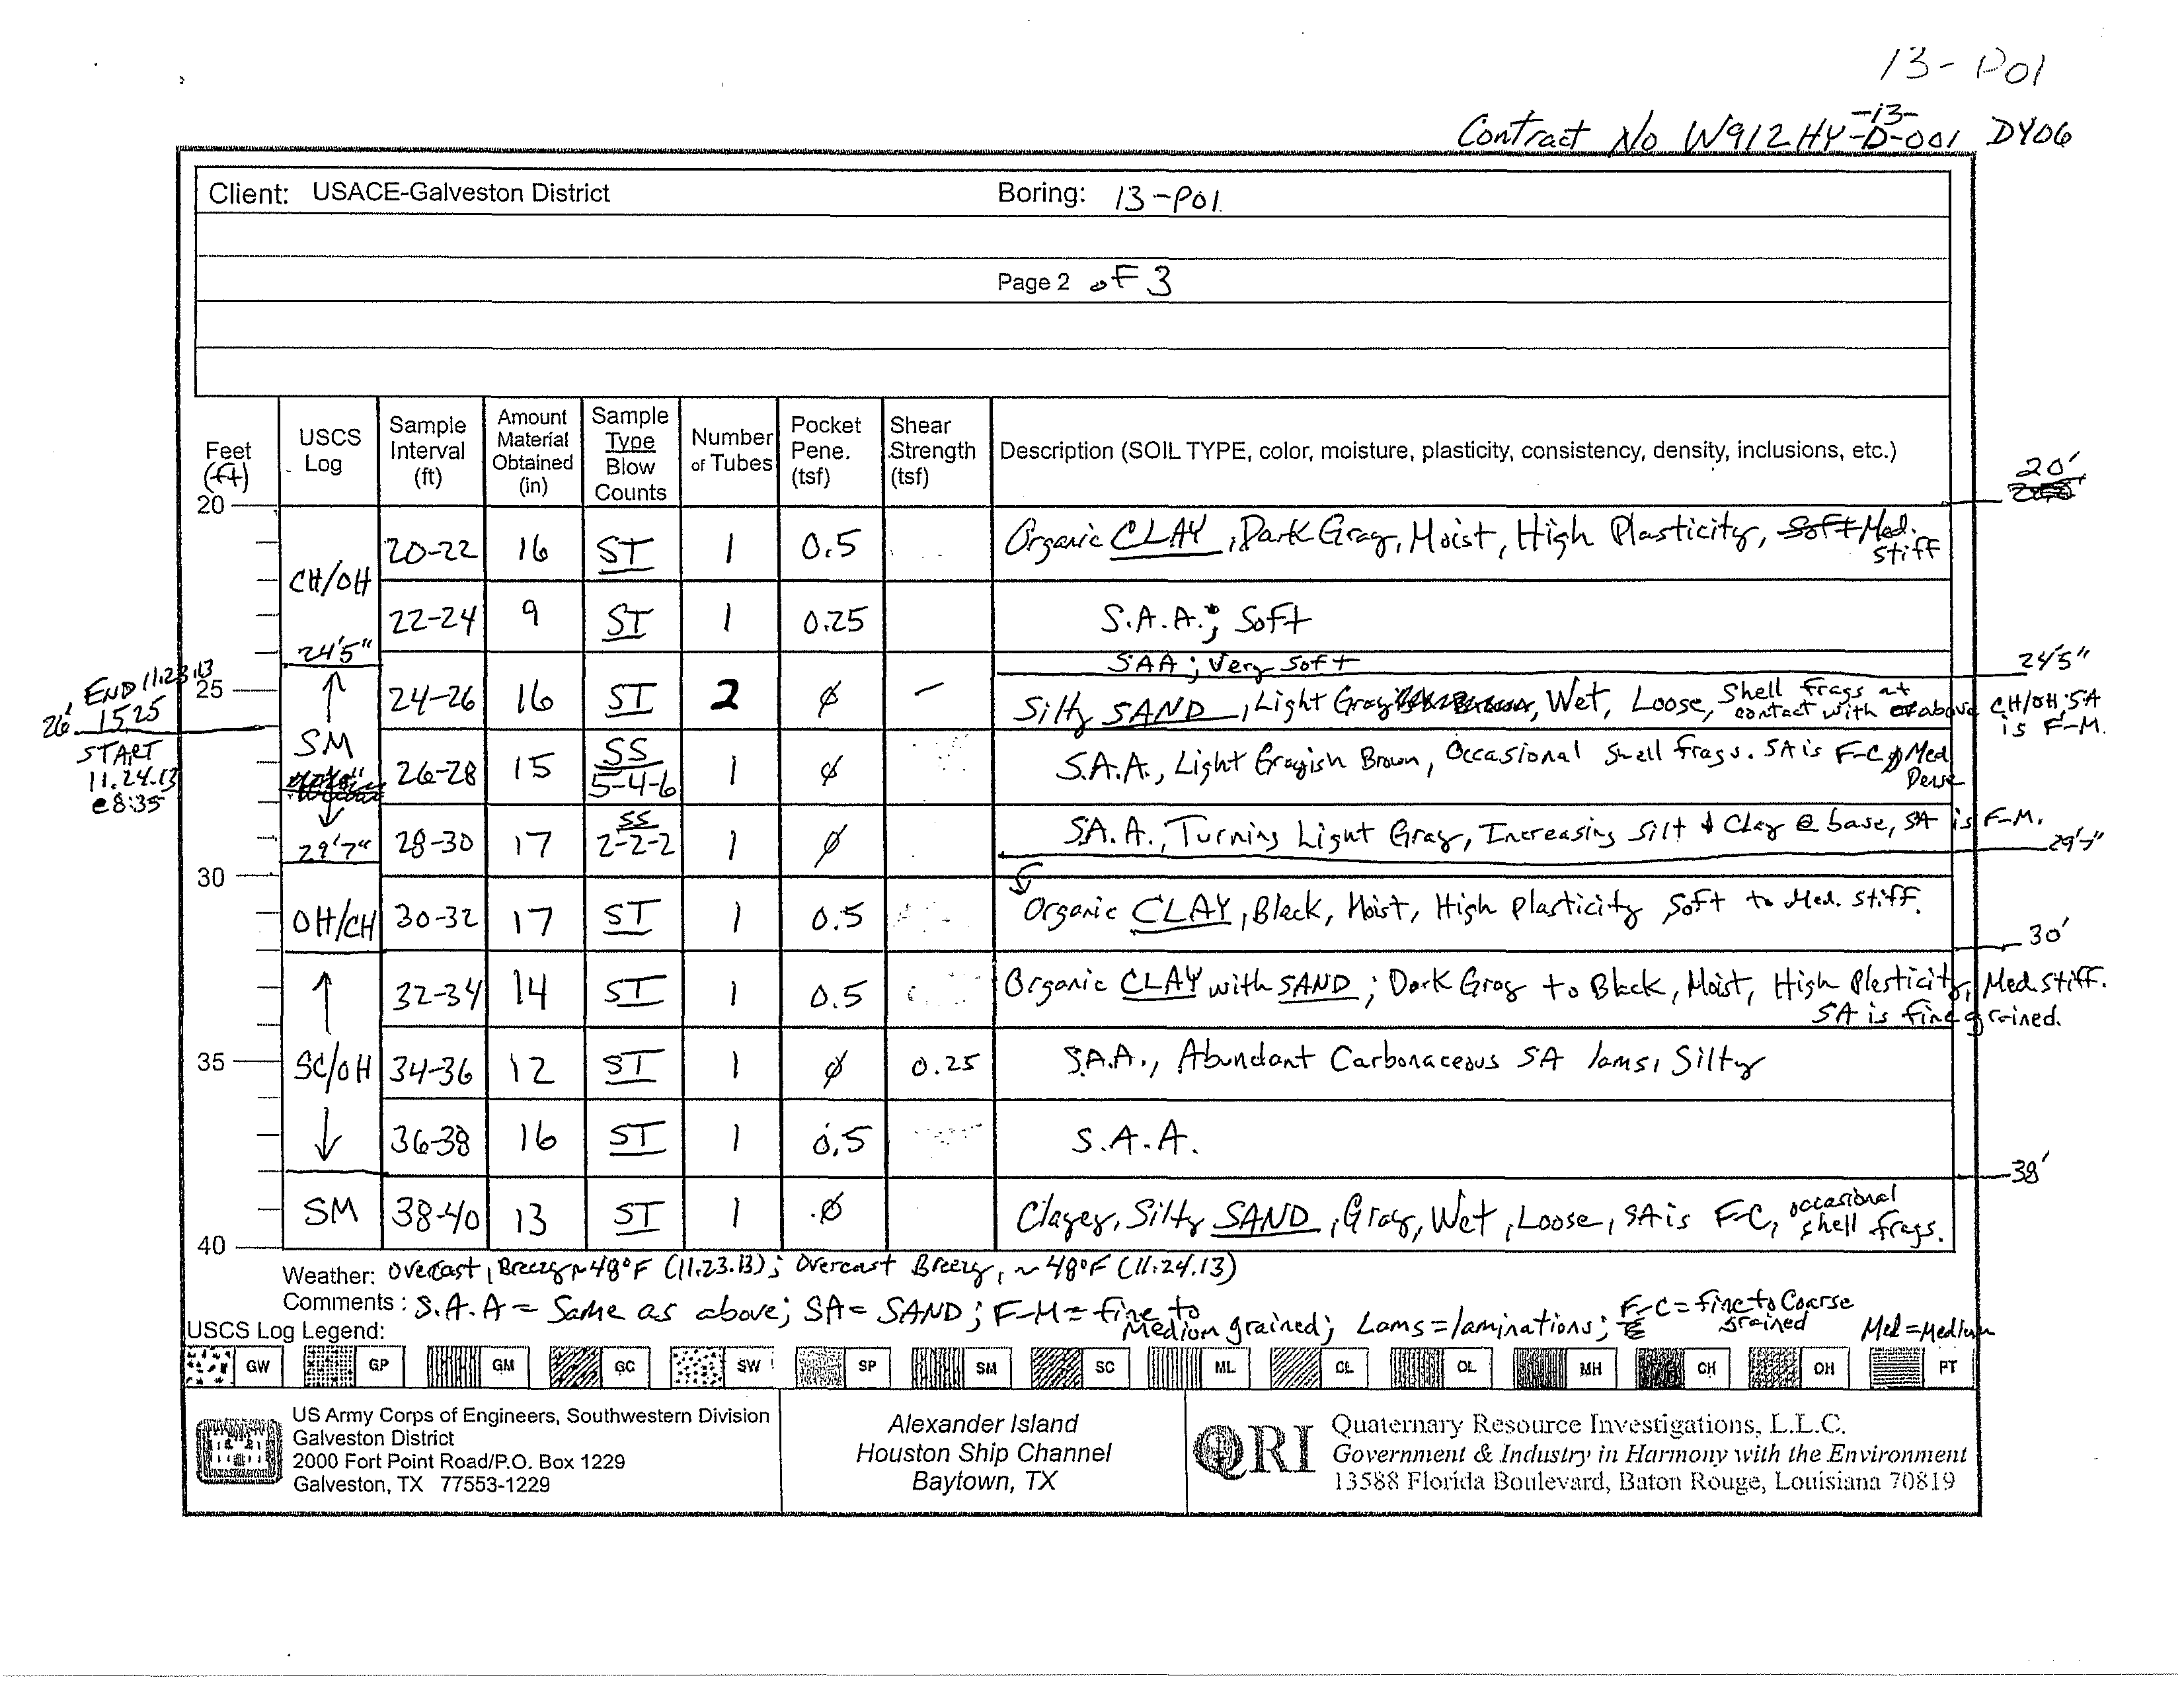 13-P01
Contract No W912HY-D-001 DY06
-13-
Client: USACE-Galveston District Boring: 13-P01
Page 2 of 3
Feet (ft) USCS Log Sample Interval (ft) Amount Material Obtained (in) Sample Type Blow Counts Number of Tubes Pocket Pene. (tsf) Shear Strength (tsf) Description (SOIL TYPE, color, moisture, plasticity, consistency, density, inclusions, etc.)
20'
20
CH/OH 20-22 16 ST 1 0.5 Organic CLAY, Dark Gray, Moist, High Plasticity, Soft Med. Stiff
22-24 9 ST 1 0.25 S.A.A.; Soft
24'5" SAA; Very Soft 24'5"
END 11.23.13 1525
26'
START 11.24.13 @8:35
25 24-26 16 ST 2 ∅ – Silty SAND, Light Gray, Wet, Loose, Shell frags at contact with above CH/OH; SA is F-M.
SM 26-28 15 SS 5-4-6 1 ∅ S.A.A., Light Grayish Brown, Occasional Shell frags. SA is F-C, Med Dense
28-30 17 SS 2-2-2 1 ∅ S.A.A., Turning Light Gray, Increasing Silt & Clay @ base, SA is F-M.
29'7" 29'7"
30
OH/CH 30-32 17 ST 1 0.5 Organic CLAY, Black, Moist, High Plasticity Soft to Med. Stiff.
30'
32-34 14 ST 1 0.5 Organic CLAY with SAND; Dark Gray to Black, Moist, High Plasticity, Med. Stiff. SA is fine grained.
35 SC/OH 34-36 12 ST 1 ∅ 0.25 S.A.A., Abundant Carbonaceous SA lams, Silty
36-38 16 ST 1 0.5 S.A.A.
38'
SM 38-40 13 ST 1 ∅ Clayey, Silty SAND, Gray, Wet, Loose, SA is F-C, occasional shell frags.
40
Weather: Overcast, Breezy ~48°F (11.23.13); Overcast Breezy, ~48°F (11.24.13)
Comments: S.A.A = Same as above; SA= SAND; F-M= fine to Medium grained; Lams=laminations; F-C=fine to Coarse grained Med=Medium
USCS Log Legend:
GW GP GM GC SW SP SM SC ML CL OL MH CH OH PT
US Army Corps of Engineers, Southwestern Division
Galveston District
2000 Fort Point Road/P.O. Box 1229
Galveston, TX 77553-1229
Alexander Island
Houston Ship Channel
Baytown, TX
QRI
Quaternary Resource Investigations, L.L.C.
Government & Industry in Harmony with the Environment
13588 Florida Boulevard, Baton Rouge, Louisiana 70819